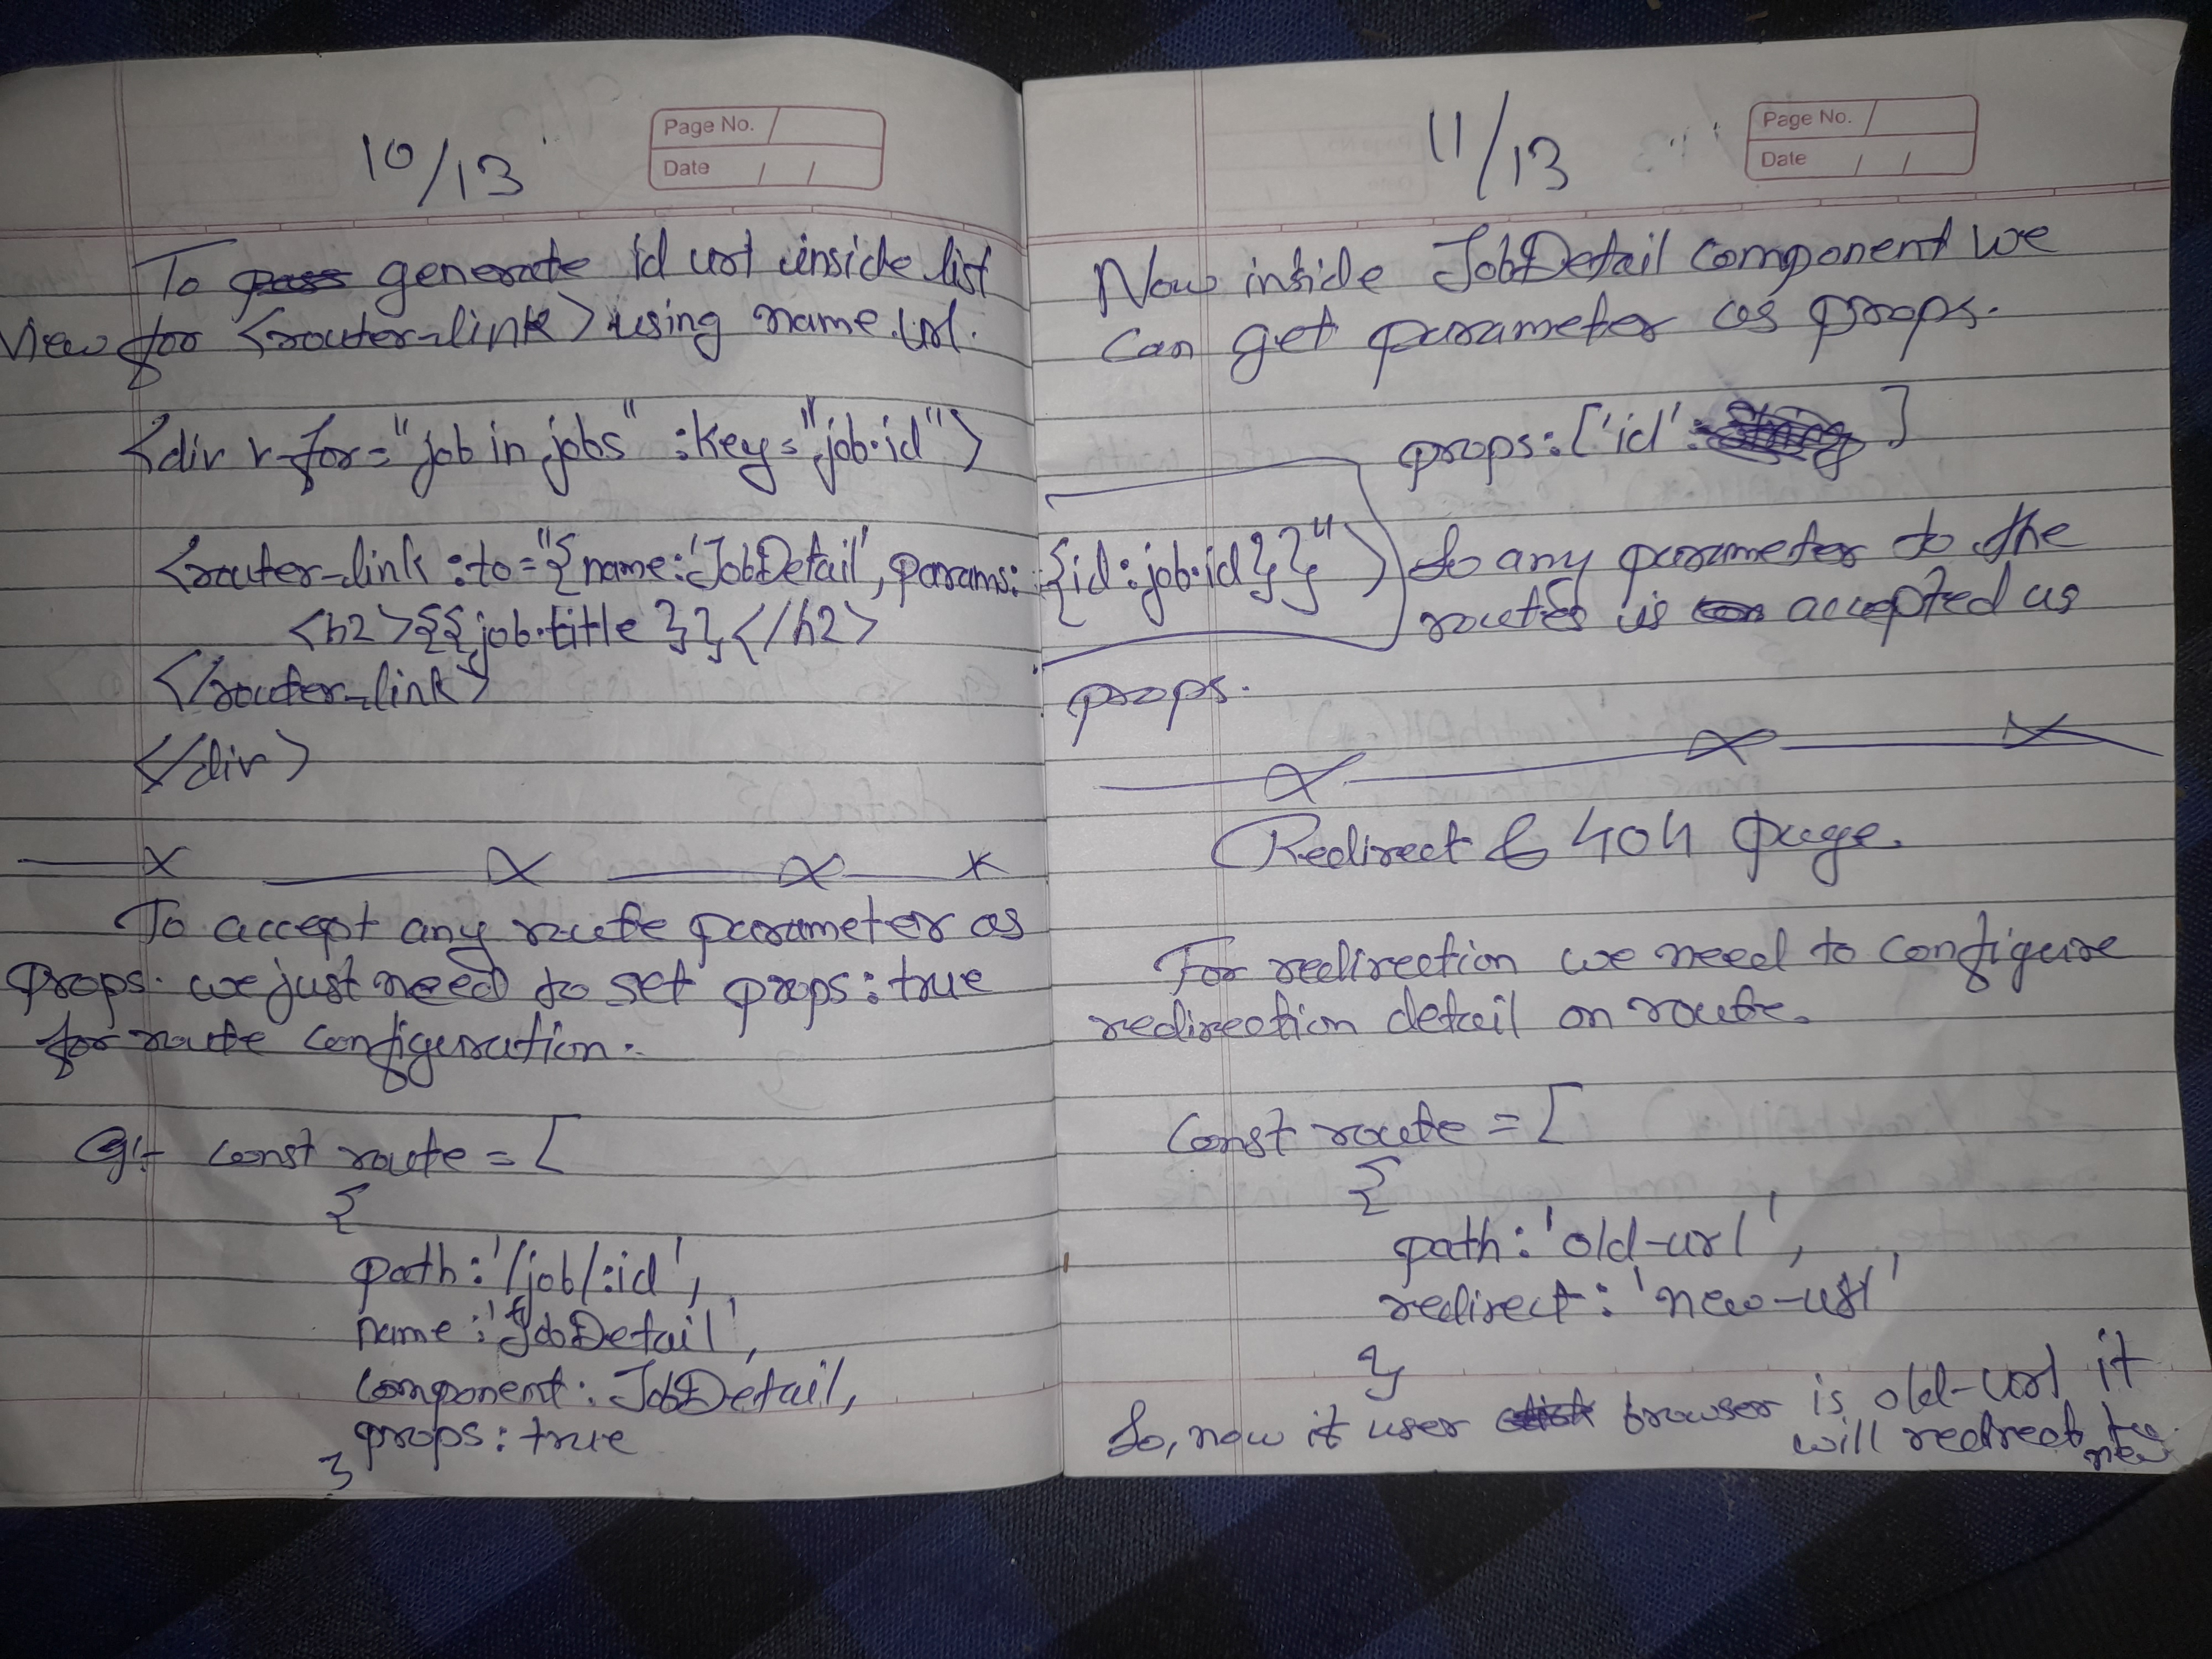 10/13
Page No.
Date / /
To generate id url inside list
view for <router-link> using name url.
<div v-for="job in jobs" :key="job.id">
<router-link :to="{name:'JobDetail', params:{id:job.id}}">
<h2>{{job.title}}</h2>
</router-link>
</div>
To accept any route parameter as
props. we just need to set props:true
for route configuration:
eg:- const route = [
{
path:'/job/:id',
name:'JobDetail',
component: JobDetail,
props:true
}
11/13
Page No.
Date / /
Now inside JobDetail component we
can get parameter as props.
props:['id']
So any parameter to the
routes is accepted as
props.
Redirect & 404 page.
For redirection we need to configure
redirection detail on route.
const route = [
{
path:'old-url',
redirect:'new-url'
}
So, now it user browser is old-url it
will redirect to
new.